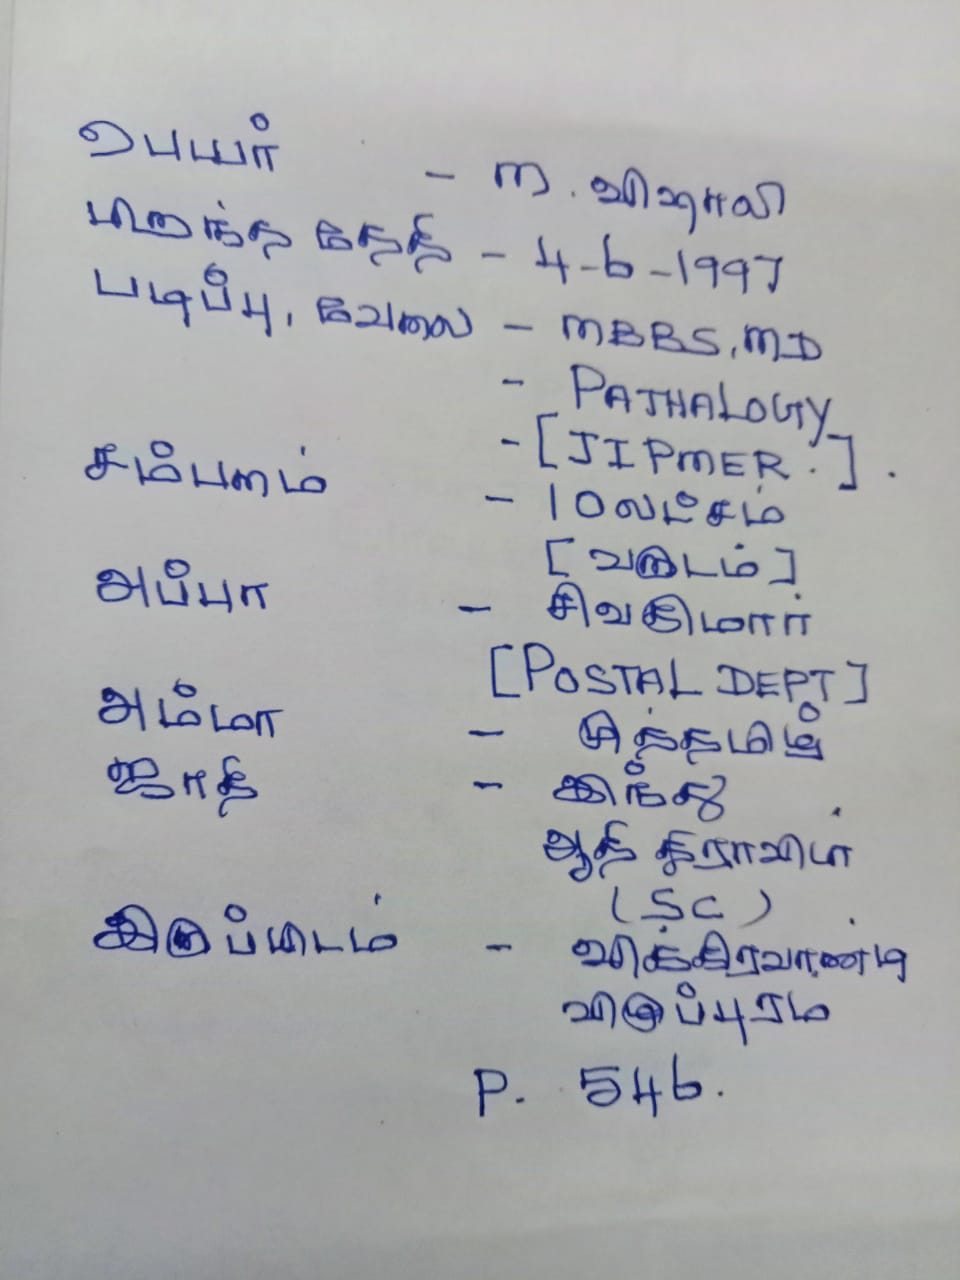 பெயர் - M. விஷாலி
பிறந்த தேதி - 4-6-1997
படிப்பு, வேலை - MBBS, MD
- PATHALOGY
- [JIPMER.].
சம்பளம் - 10 லட்சம்
[வருடம்]
அப்பா - சிவகுமார்
[POSTAL DEPT]
அம்மா - முத்தமிழ்
ஜாதி - இந்து
ஆதி திராவிடர்
(SC)
இருப்பிடம் - விக்கிரவாண்டி
விழுப்புரம்
P. 546.